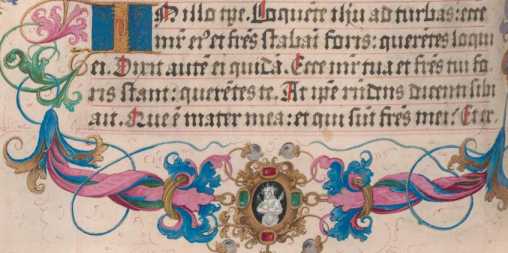 IN illo tp̄e. Loquēte ih̄u ad turbas: ecce
mr̄ eiꝰ et frēs stabāt foris: querētes loqui
ei. Dixit autē ei quidā. Ecce mr̄ tua et frēs tui fo
ris stant: querētes te. At ip̄e r̄ndens dicenti sibi
ait. Que ē mater mea: et qui sūt frēs mei: Et ex